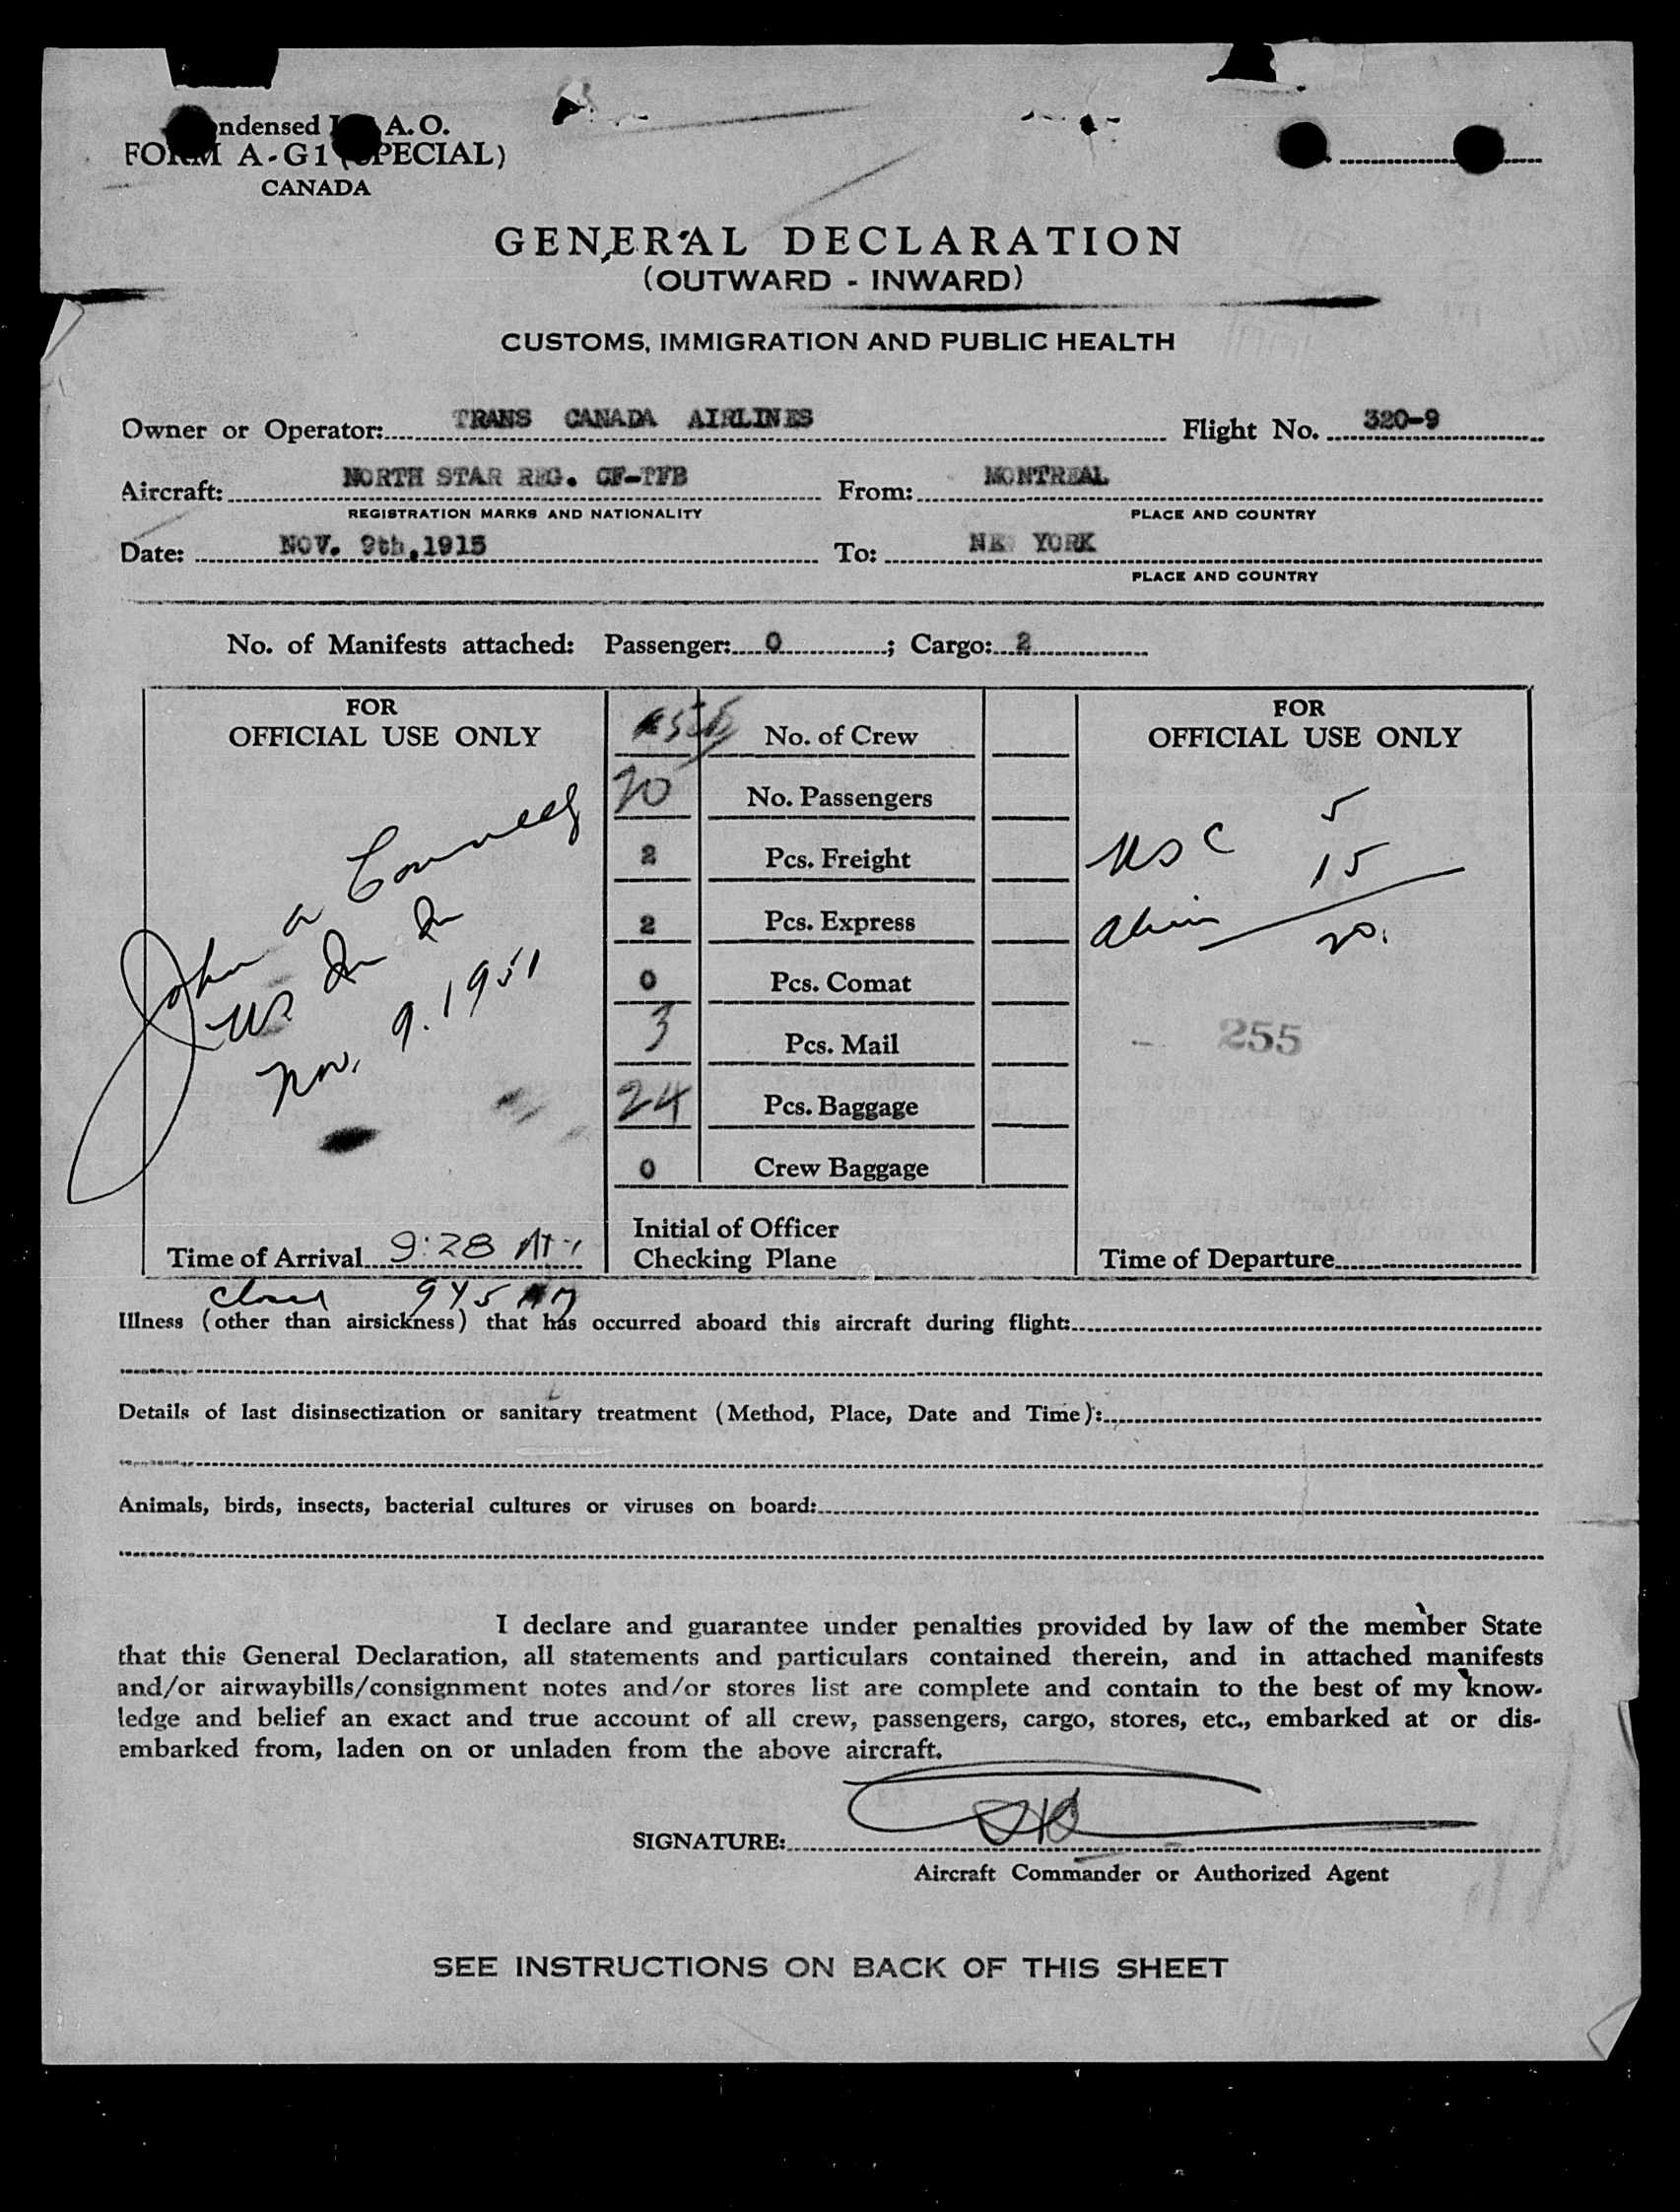 ndensed A. O.
FORM A-G1 (SPECIAL)
CANADA
GENERAL DECLARATION
(OUTWARD - INWARD)
CUSTOMS, IMMIGRATION AND PUBLIC HEALTH
Owner or Operator: TRANS CANADA AIRLINES Flight No. 320-9
Aircraft: NORTH STAR REG. CF-TFB From: MONTREAL
REGISTRATION MARKS AND NATIONALITY PLACE AND COUNTRY
Date: NOV. 9th,1915 To: NE YORK
PLACE AND COUNTRY
No. of Manifests attached: Passenger: 0 ; Cargo: 2
FOR
OFFICIAL USE ONLY
John a Connelly
US
Nov. 9. 1951
Time of Arrival 9:28 AM
closed 945 AM
No. of Crew
20 No. Passengers
2 Pcs. Freight
2 Pcs. Express
0 Pcs. Comat
3 Pcs. Mail
24 Pcs. Baggage
0 Crew Baggage
Initial of Officer
Checking Plane
FOR
OFFICIAL USE ONLY
USC 5
Alien 15
20.
255
Time of Departure
Illness (other than airsickness) that has occurred aboard this aircraft during flight:
Details of last disinsectization or sanitary treatment (Method, Place, Date and Time):
Animals, birds, insects, bacterial cultures or viruses on board:
I declare and guarantee under penalties provided by law of the member State
that this General Declaration, all statements and particulars contained therein, and in attached manifests
and/or airwaybills/consignment notes and/or stores list are complete and contain to the best of my know-
ledge and belief an exact and true account of all crew, passengers, cargo, stores, etc., embarked at or dis-
embarked from, laden on or unladen from the above aircraft.
SIGNATURE:
Aircraft Commander or Authorized Agent
SEE INSTRUCTIONS ON BACK OF THIS SHEET